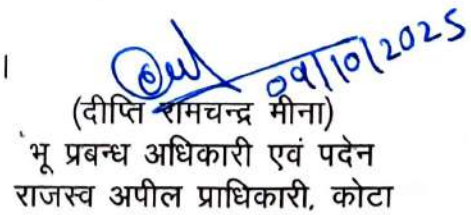 09/10/2025
(दीप्ति रामचन्द्र मीना)
भू प्रबन्ध अधिकारी एवं पदेन
राजस्व अपील प्राधिकारी, कोटा